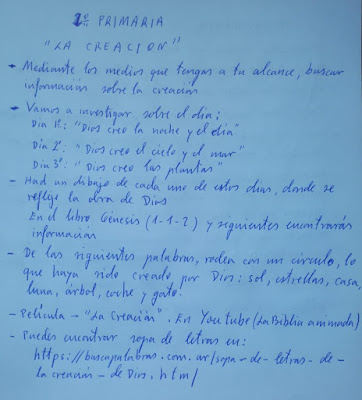 1º PRIMARIA
"LA CREACION"
- Mediante los medios que tengas a tu alcance, buscar
información sobre la creación
- Vamos a investigar sobre el día:
Dia 1º: "Dios creo la noche y el día"
Dia 2º: "Dios creo el cielo y el mar"
Dia 3º: "Dios creo las plantas"
- Haz un dibujo de cada uno de estos dias, donde se
refleje la obra de Dios
En el libro Génesis (1-1-2) y siguientes encontrarás
información
- De las siguientes palabras, rodea con un circulo, lo
que haya sido creado por Dios: sol, estrellas, casa,
luna, árbol, coche y gato.
- Película - "La Creación". En Youtube (La Biblia animada)
- Puedes encontrar sopa de letras en:
https://buscapalabras.com.ar/sopa-de-letras-de-
la creación-de Dios.html